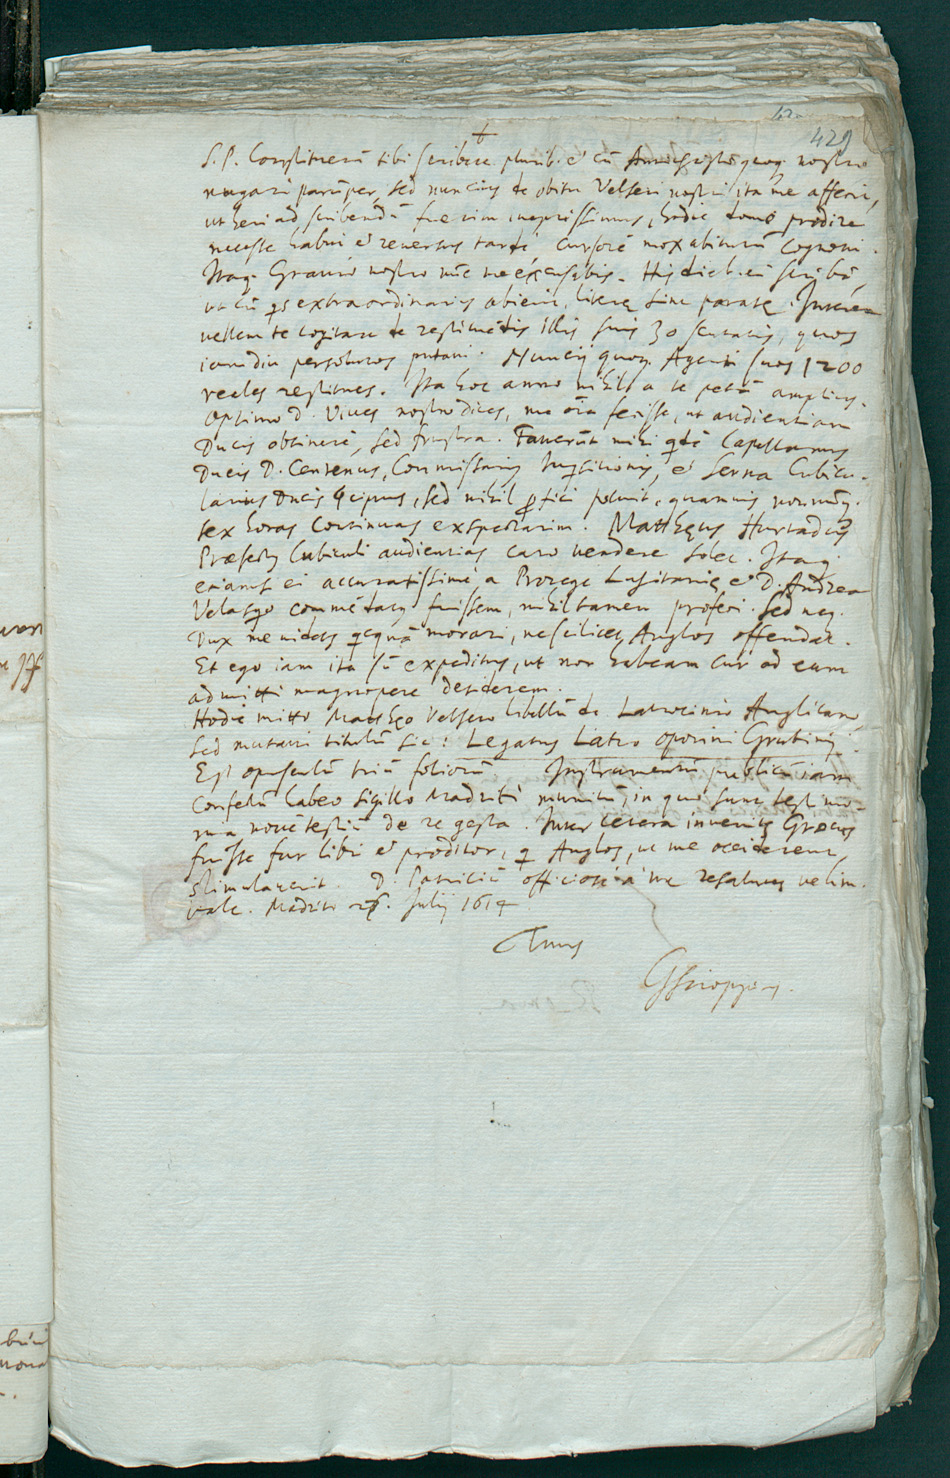 429
†
S. P. Constitueră tibi scribere plurib. et cū nostro
nugari parūper, sed nuncius de obitu Velseri nostri ita me affecit,
ut heri ad scribendū fuerim ineptissimus, hodie domo prodire
necesse habui et reversus tarde cursorē mox abiturū cognovi.
Itaq. Gravio nostro nūc me excusabis. scribā,
extraordinarius abierit, literę sint paratę. Interea
vellem te cogitare de restituēdis illis suis 30 scutatis, quos
iamdiu persolutos putavi. Nuncij quoq. Agenti suos 1200
reales restitues. Ita hoc anno nihil a te petā amplius.
Optimo D. Vives nostro dices, me oīa fecisse, ut audientiam
Ducis obtinerē, sed frustra. Faverūt mihi qdē Capellanus
Ducis D. Centenus, Commissarius Inquisitionis, et Serna Cubicu-
larius Ducis , sed nihil profici potuit, quamvis nonnūq.
sex horas continuas exspectarim. Matthęus Hurtadus
Præfectus Cubiculi audientias caro vendere solet. Itaq.
etiamsi ei accuratissimè a Prorege Lusitanię et D. Andrea
Velasqo commēdatus fuissem, nihil tamen profeci. Sed neq.
Dux me videtur morari, ne scilicet Anglos offendat.
Et ego iam ita sū expeditus, ut non habeam cur ad eum
admitti magnopere desiderem.
Hodie mitto Matthęo Velsero libellū de Latrocinio Anglicano,
sed mutavi titulū sic: Legatus Latro Oporini Grubinij.
Est opusculū triū foliorū. Instrumentū publicū iam
confectū habeo sigillo Madriti munitū, in quo sunt testimo-
nia novē testiū de re gesta. Inter cetera invenitur Gręcus
fuisse fur libri et proditor, q Anglos, ut me occiderent,
stimulaverit. D. Patriciū officiosè a me resalutes velim.
Vale. Madriti 26. Julij 1614
Tuus
GScioppius.